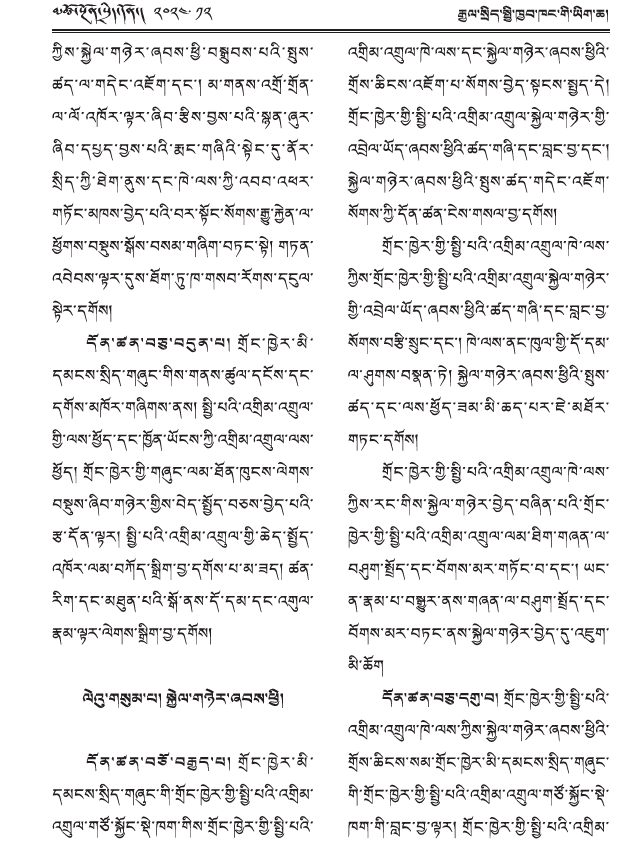 ༢༠༢༤.༡༢
རྒྱལ་སྲིད་སྤྱི་ཁྱབ་ཁང་གི་ཡིག་ཆ།
ཀྱིས་སྐྱེལ་གཉེར་ཞབས་ཕྱི་བསྒྲུབས་པའི་སྤུས་
ཚད་ལ་གདེང་འཇོག་དང་། མ་གནས་འགྲོ་གྲོན་
ལ་ལོ་འཁོར་ལྟར་ཞིབ་རྩིས་བྱས་པའི་སྙན་ཞུར་
ཞིབ་དཔྱད་བྱས་པའི་རྨང་གཞིའི་སྟེང་དུ་ནོར་
སྲིད་ཀྱི་ཐེག་ནུས་དང་ཁེ་ལས་ཀྱི་འབབ་འཕར་
གཏོང་མཁས་བྱེད་པའི་བར་སྟོང་སོགས་རྒྱུ་རྐྱེན་ལ་
ཕྱོགས་བསྡུས་སྒོས་བསམ་གཞིག་བཏང་སྟེ། གཏན་
འབེབས་ལྟར་དུས་ཐོག་ཏུ་ཁ་གསབ་རོགས་དངུལ་
སྟེར་དགོས།
དོན་ཚན་བཅུ་བདུན་པ། གྲོང་ཁྱེར་མི་
དམངས་སྲིད་གཞུང་གིས་གནས་ཚུལ་དངོས་དང་
དགོས་མཁོར་གཞིགས་ནས། སྤྱི་པའི་འགྲིམ་འགྲུལ་
གྱི་ལས་ཕྱོད་དང་ཁྱོན་ཡོངས་ཀྱི་འགྲིམ་འགྲུལ་ལས་
ཕྱོད། གྲོང་ཁྱེར་གྱི་གཞུང་ལམ་ཐོན་ཁུངས་ལེགས་
བསྡུས་ཞིབ་གཉེར་གྱིས་བེད་སྤྱོད་བཅས་བྱེད་པའི་
རྩ་དོན་ལྟར། སྤྱི་པའི་འགྲིམ་འགྲུལ་གྱི་ཆེད་སྤྱོད་
འཁོར་ལམ་བཀོད་སྒྲིག་བྱ་དགོས་པ་མ་ཟད། ཚན་
རིག་དང་མཐུན་པའི་སྒོ་ནས་དོ་དམ་དང་འགུལ་
རྣམ་ལྟར་ལེགས་སྒྲིག་བྱ་དགོས།
ལེའུ་གསུམ་པ། སྐྱེལ་གཉེར་ཞབས་ཕྱི།
དོན་ཚན་བཅོ་བརྒྱད་པ། གྲོང་ཁྱེར་མི་
དམངས་སྲིད་གཞུང་གི་གྲོང་ཁྱེར་གྱི་སྤྱི་པའི་འགྲིམ་
འགྲུལ་གཙོ་སྐྱོང་སྡེ་ཁག་གིས་གྲོང་ཁྱེར་གྱི་སྤྱི་པའི་
འགྲིམ་འགྲུལ་ཁེ་ལས་དང་སྐྱེལ་གཉེར་ཞབས་ཕྱིའི་
གྲོས་ཆིངས་འཇོག་པ་སོགས་བྱེད་སྟངས་སྤྱད་དེ།
གྲོང་ཁྱེར་གྱི་སྤྱི་པའི་འགྲིམ་འགྲུལ་སྐྱེལ་གཉེར་གྱི་
འབྲེལ་ཡོད་ཞབས་ཕྱིའི་ཚད་གཞི་དང་བླང་བྱ་དང་།
སྐྱེལ་གཉེར་ཞབས་ཕྱིའི་སྤུས་ཚད་གདེང་འཇོག་
སོགས་ཀྱི་དོན་ཚན་ངེས་གསལ་བྱ་དགོས།
གྲོང་ཁྱེར་གྱི་སྤྱི་པའི་འགྲིམ་འགྲུལ་ཁེ་ལས་
ཀྱིས་གྲོང་ཁྱེར་གྱི་སྤྱི་པའི་འགྲིམ་འགྲུལ་སྐྱེལ་གཉེར་
གྱི་འབྲེལ་ཡོད་ཞབས་ཕྱིའི་ཚད་གཞི་དང་བླང་བྱ་
སོགས་བརྩི་སྲུང་དང་། ཁེ་ལས་ནང་ཁུལ་གྱི་དོ་དམ་
ལ་ཤུགས་བསྣན་ཏེ། སྐྱེལ་གཉེར་ཞབས་ཕྱིའི་སྤུས་
ཚད་དང་ལས་ཕྱོད་ཟམ་མི་ཆད་པར་ཇེ་མཐོར་
གཏང་དགོས།
གྲོང་ཁྱེར་གྱི་སྤྱི་པའི་འགྲིམ་འགྲུལ་ཁེ་ལས་
ཀྱིས་རང་གིས་སྐྱེལ་གཉེར་བྱེད་བཞིན་པའི་གྲོང་
ཁྱེར་གྱི་སྤྱི་པའི་འགྲིམ་འགྲུལ་ལམ་ཐིག་གཞན་ལ་
བཤུག་སྤྲོད་དང་བོགས་མར་གཏོང་བ་དང་། ཡང་
ན་རྣམ་པ་བསྒྱུར་ནས་གཞན་ལ་བཤུག་སྤྲོད་དང་
བོགས་མར་བཏང་ནས་སྐྱེལ་གཉེར་བྱེད་དུ་འཇུག་
མི་ཆོག
དོན་ཚན་བཅུ་དགུ་བ། གྲོང་ཁྱེར་གྱི་སྤྱི་པའི་
འགྲིམ་འགྲུལ་ཁེ་ལས་ཀྱིས་སྐྱེལ་གཉེར་ཞབས་ཕྱིའི་
གྲོས་ཆིངས་སམ་གྲོང་ཁྱེར་མི་དམངས་སྲིད་གཞུང་
གི་གྲོང་ཁྱེར་གྱི་སྤྱི་པའི་འགྲིམ་འགྲུལ་གཙོ་སྐྱོང་སྡེ་
ཁག་གི་བླང་བྱ་ལྟར། གྲོང་ཁྱེར་གྱི་སྤྱི་པའི་འགྲིམ་